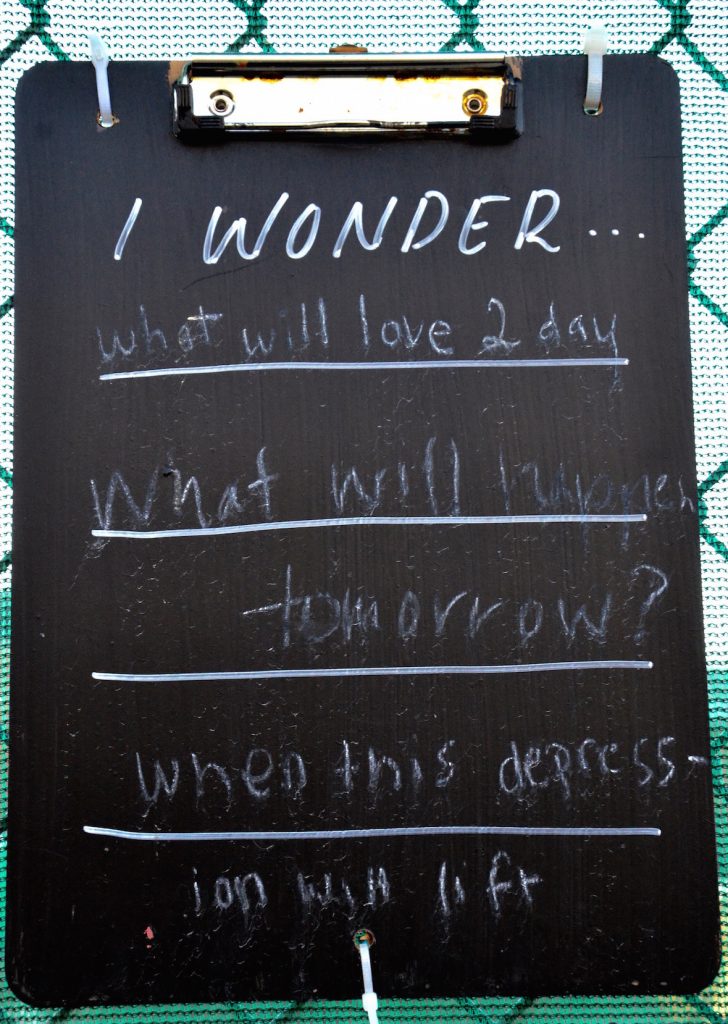 I WONDER...
what will love 2 day
What will happen
tomorrow?
when this depress-
ion will lift